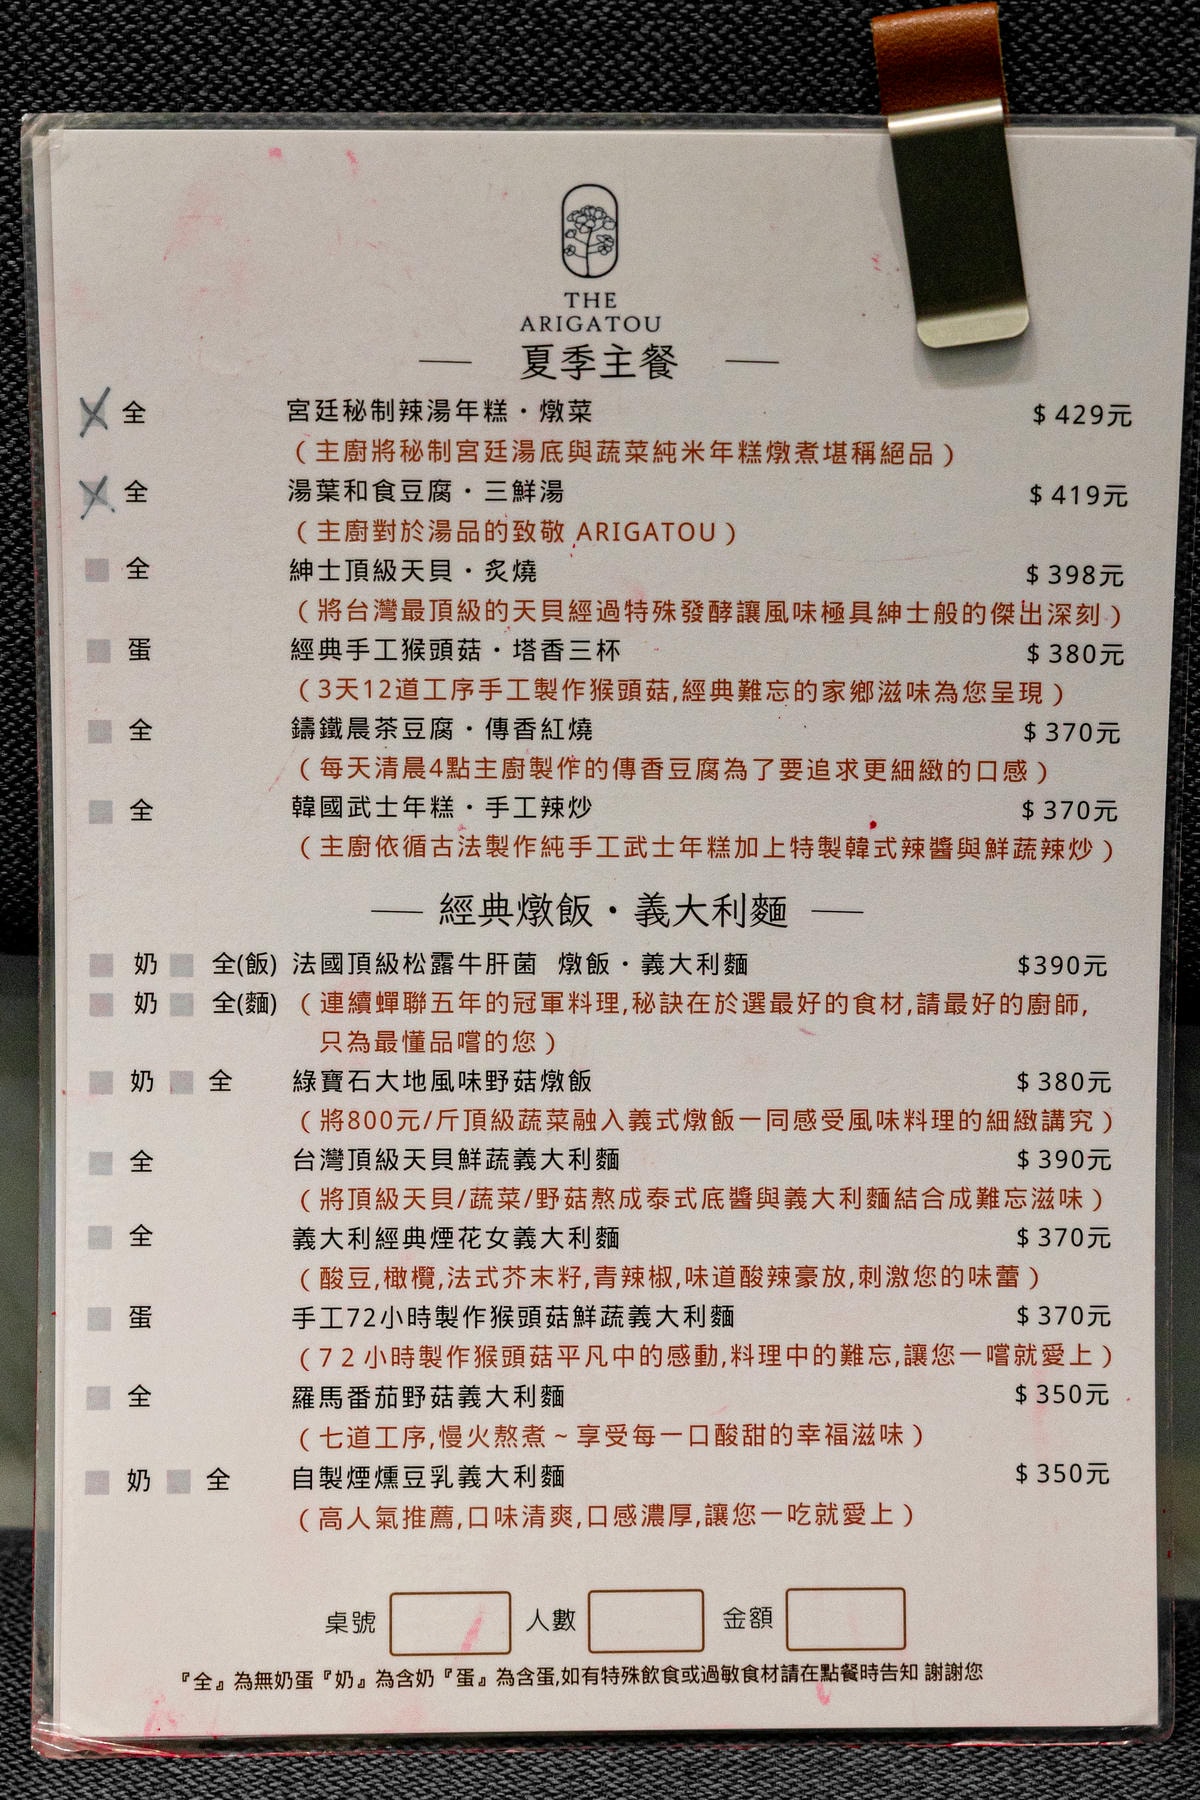 THE
ARIGATOU
夏季主餐
全 宮廷秘制辣湯年糕・燉菜 $429元
（主廚將秘制宮廷湯底與蔬菜純米年糕燉煮堪稱絕品）
全 湯葉和食豆腐・三鮮湯 $419元
（主廚對於湯品的致敬 ARIGATOU）
全 紳士頂級天貝・炙燒 $398元
（將台灣最頂級的天貝經過特殊發酵讓風味極具紳士般的傑出深刻）
蛋 經典手工猴頭菇・塔香三杯 $380元
（3天12道工序手工製作猴頭菇,經典難忘的家鄉滋味為您呈現）
全 鑄鐵晨茶豆腐・傳香紅燒 $370元
（每天清晨4點主廚製作的傳香豆腐為了要追求更細緻的口感）
全 韓國武士年糕・手工辣炒 $370元
（主廚依循古法製作純手工武士年糕加上特製韓式辣醬與鮮蔬辣炒）
經典燉飯・義大利麵
奶 全(飯) 法國頂級松露牛肝菌 燉飯・義大利麵 $390元
奶 全(麵) （連續蟬聯五年的冠軍料理,秘訣在於選最好的食材,請最好的廚師,
只為最懂品嚐的您）
奶 全 綠寶石大地風味野菇燉飯 $380元
（將800元/斤頂級蔬菜融入義式燉飯一同感受風味料理的細緻講究）
全 台灣頂級天貝鮮蔬義大利麵 $390元
（將頂級天貝/蔬菜/野菇熬成泰式底醬與義大利麵結合成難忘滋味）
全 義大利經典煙花女義大利麵 $370元
（酸豆,橄欖,法式芥末籽,青辣椒,味道酸辣豪放,刺激您的味蕾）
蛋 手工72小時製作猴頭菇鮮蔬義大利麵 $370元
（72小時製作猴頭菇平凡中的感動,料理中的難忘,讓您一嚐就愛上）
全 羅馬番茄野菇義大利麵 $350元
（七道工序,慢火熬煮~享受每一口酸甜的幸福滋味）
奶 全 自製煙燻豆乳義大利麵 $350元
（高人氣推薦,口味清爽,口感濃厚,讓您一吃就愛上）
桌號 人數 金額
『全』為無奶蛋『奶』為含奶『蛋』為含蛋,如有特殊飲食或過敏食材請在點餐時告知 謝謝您